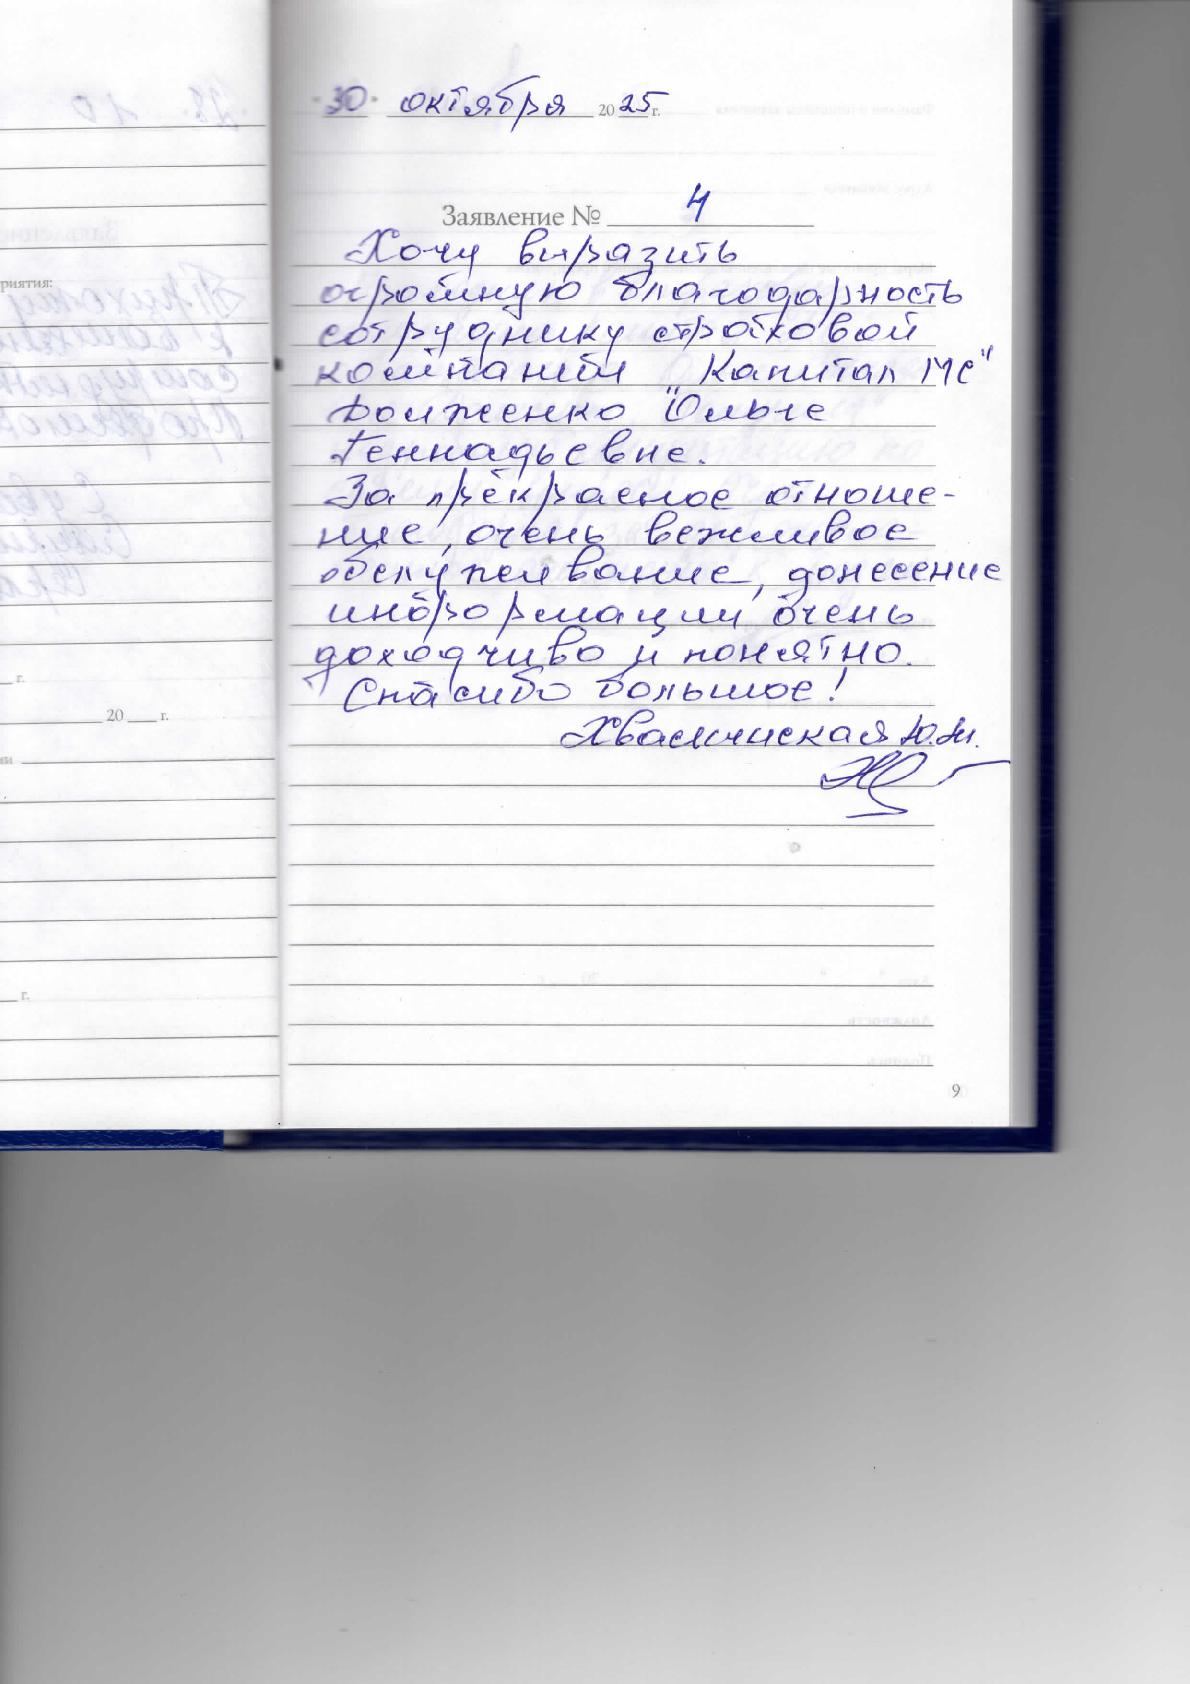 "30" октября 2025 г.
Заявление № 4
Хочу выразить
огромную благодарность
сотруднику страховой
компании "Капитал МС"
Долженко Ольге
Геннадьевне.
За прекрасное отноше-
ние, очень вежливое
обслуживание, донесение
информации очень
доходчиво и понятно.
Спасибо большое!
Ю.М.
9
риятия:
г.
20 г.
г.